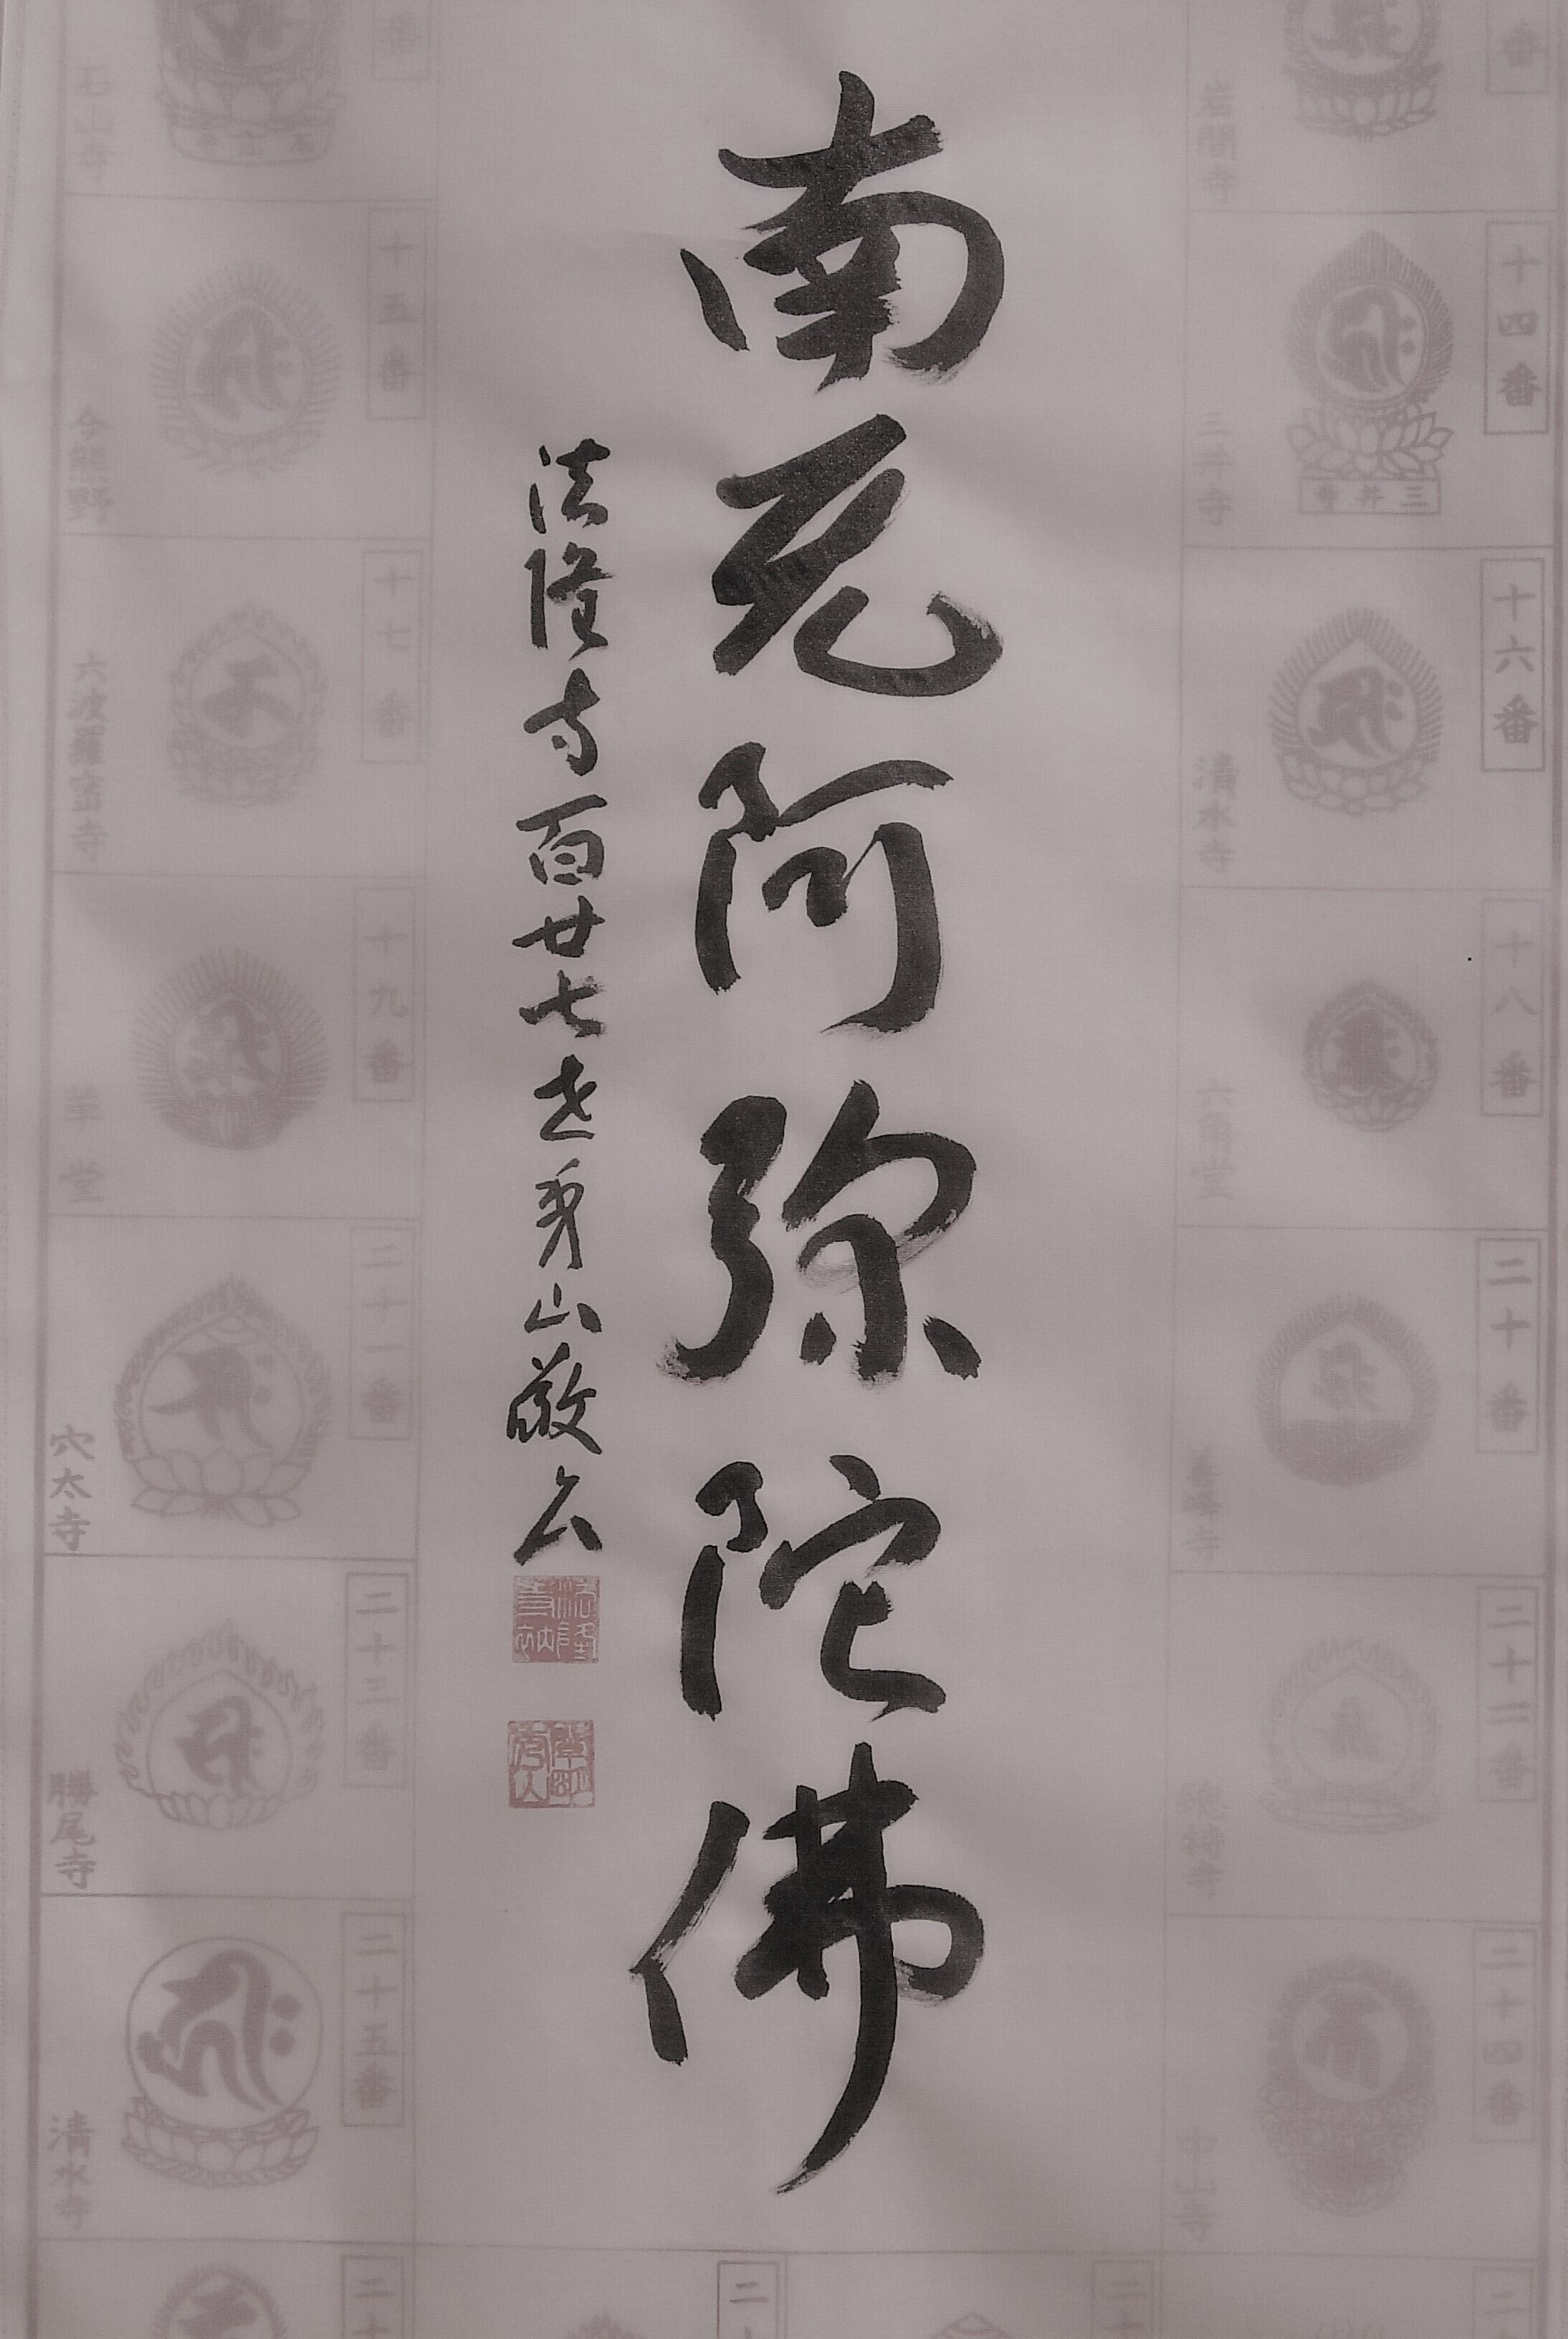 南无阿弥陀佛
法隆寺百廿七世秀山敬书
番
岩間寺
十四番
三井寺
三井寺
十六番
清水寺
十八番
六角堂
二十番
善峰寺
二十二番
総持寺
二十四番
中山寺
番
石山寺
十五番
今熊野
十七番
六波羅密寺
十九番
革堂
二十一番
穴太寺
二十三番
勝尾寺
二十五番
清水寺